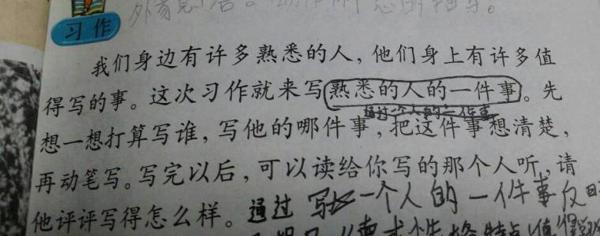 习作
我们身边有许多熟悉的人，他们身上有许多值
得写的事。这次习作就来写熟悉的人的一件事。先
通过一个人的一件事
想一想打算写谁，写他的哪件事，把这件事想清楚，
再动笔写。写完以后，可以读给你写的那个人听，请
他评评写得怎么样。通过写一个人的一件事